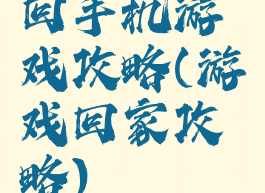 回手机游
戏攻略(游
戏回家攻
略)